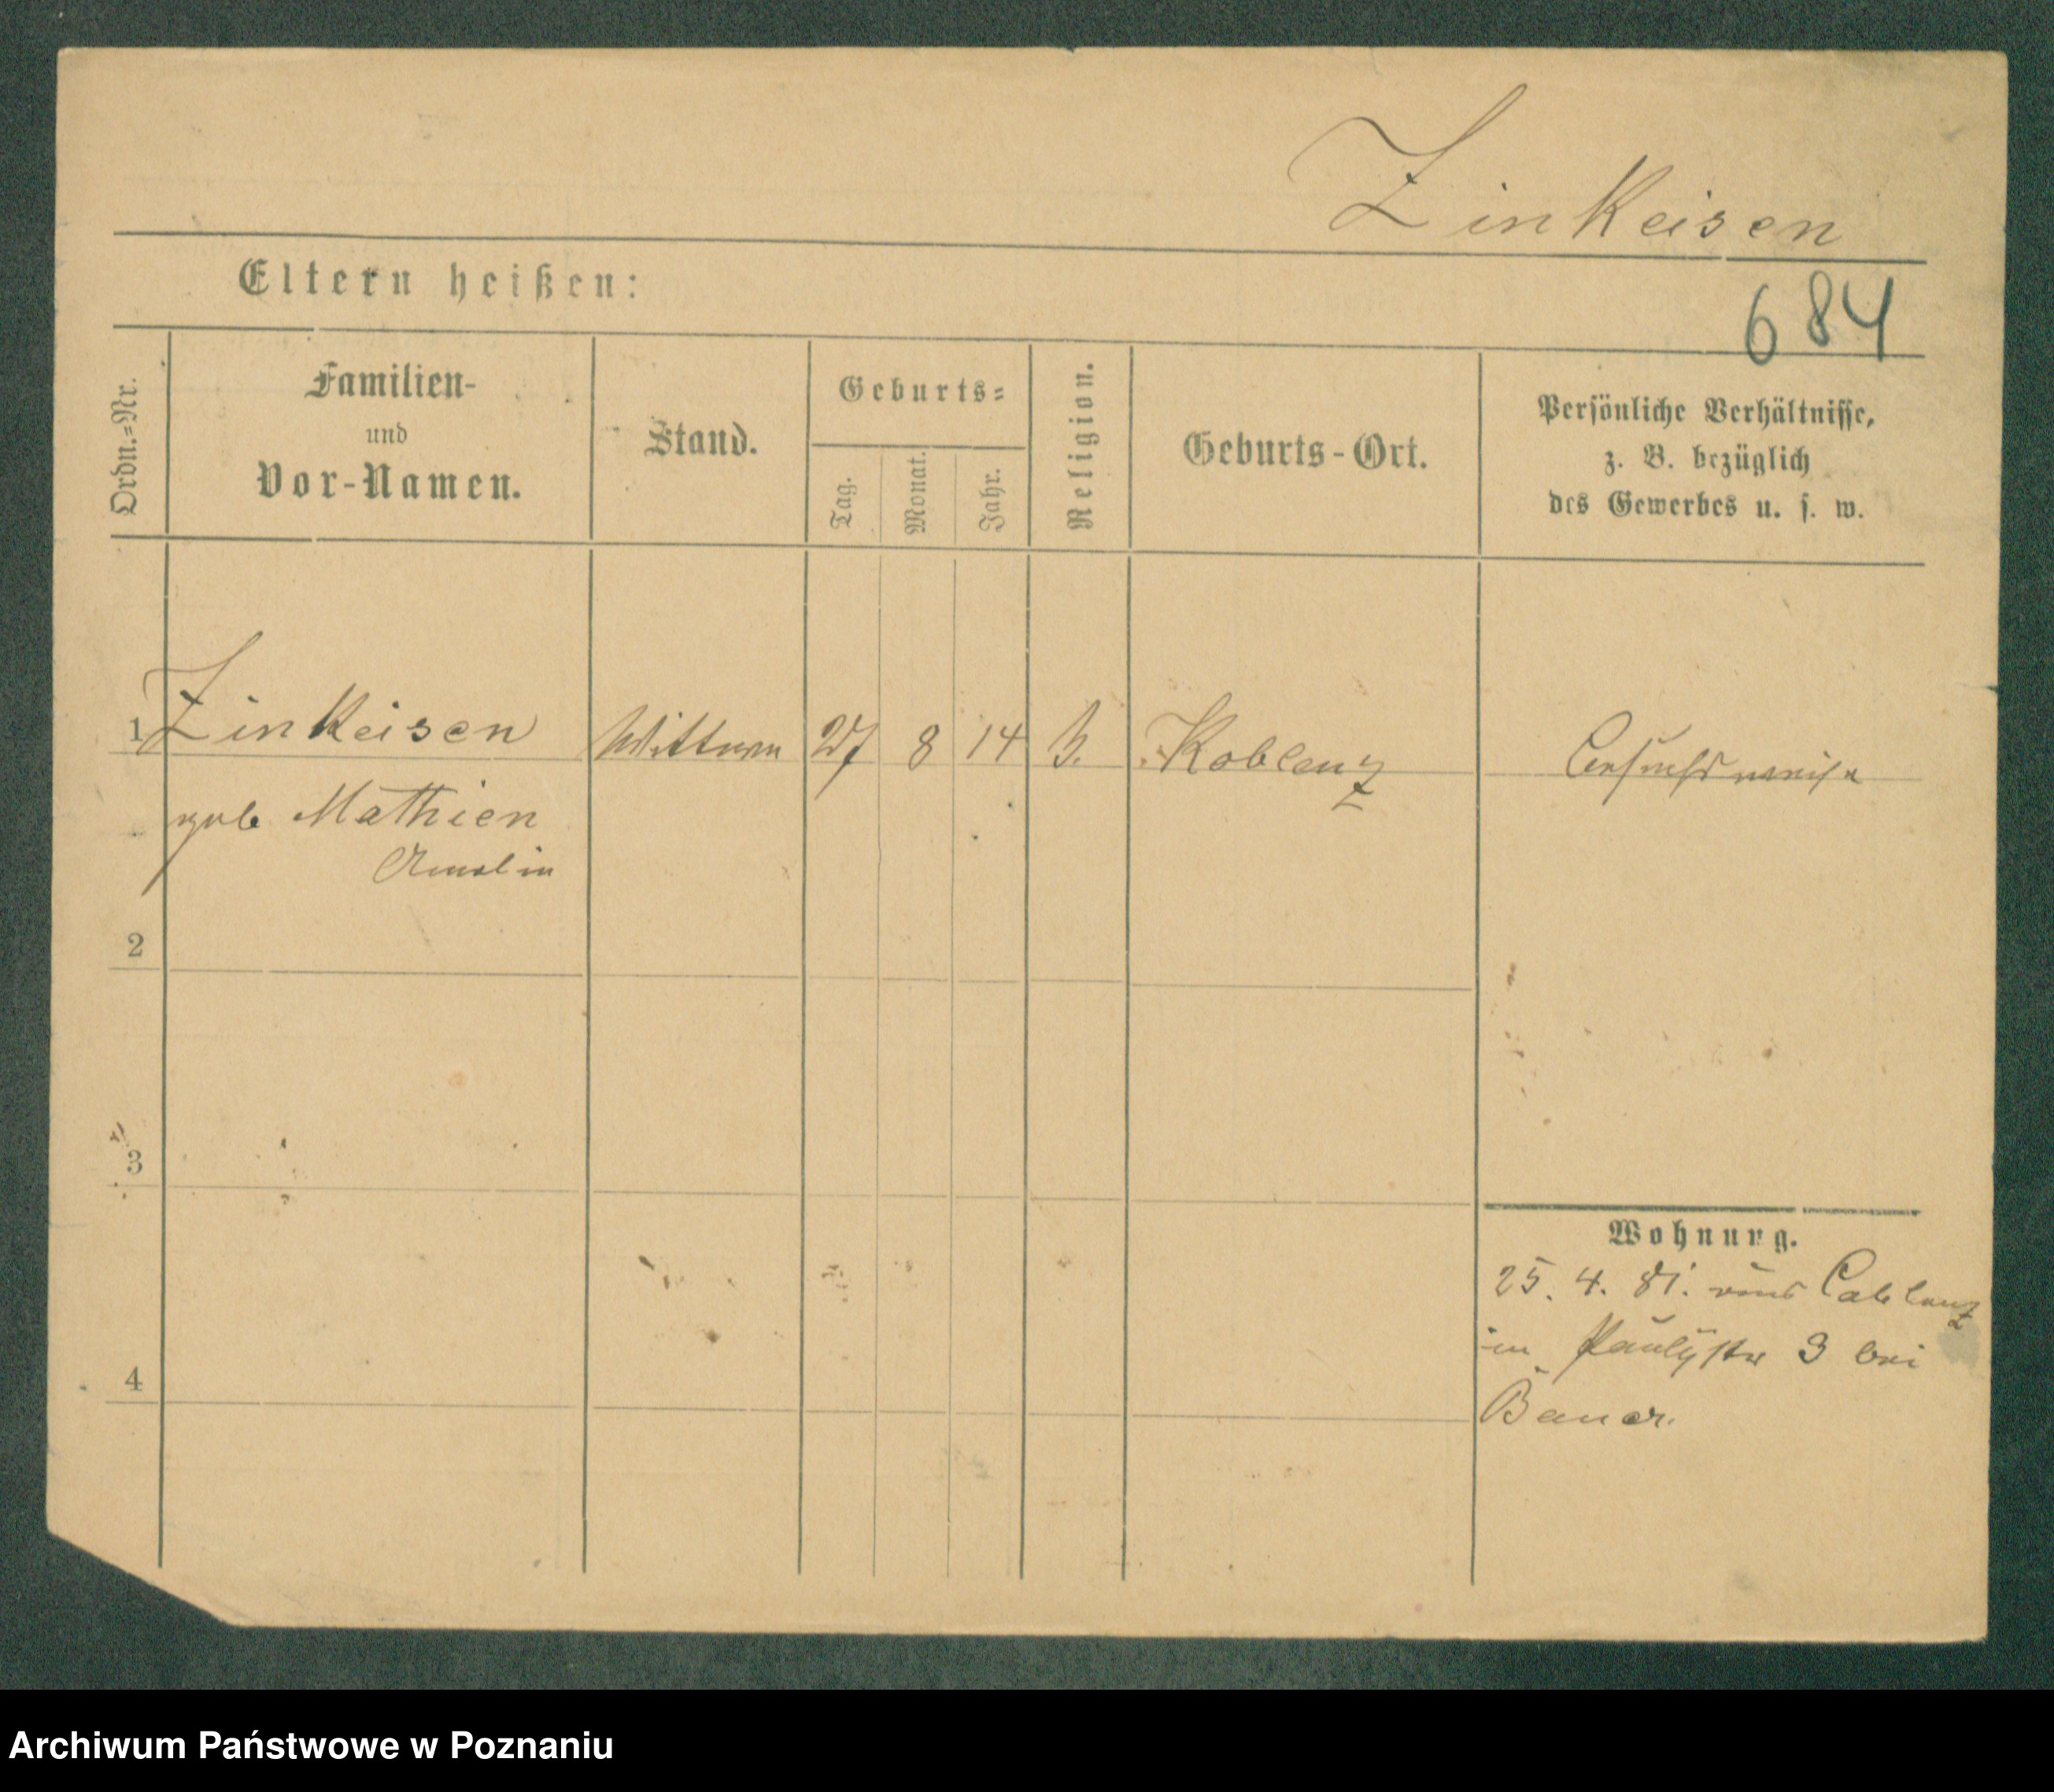 Zinkeisen
Eltern heißen:
684
Ordn.=Nr.
Familien-
und
Vor-Namen.
Stand.
Geburts=
Tag.
Monat.
Jahr.
Religion.
Geburts-Ort.
Persönliche Verhältnisse,
z. B. bezüglich
des Gewerbes u. s. w.
1 Zinkeisen Wittwe 27 8 14 Koblenz besuchsweise
geb Mathien
Amalin
2
3
4
Wohnung.
25. 4. 81. aus Coblenz
in Paulystr 3 bei
Bauer.
Archiwum Państwowe w Poznaniu